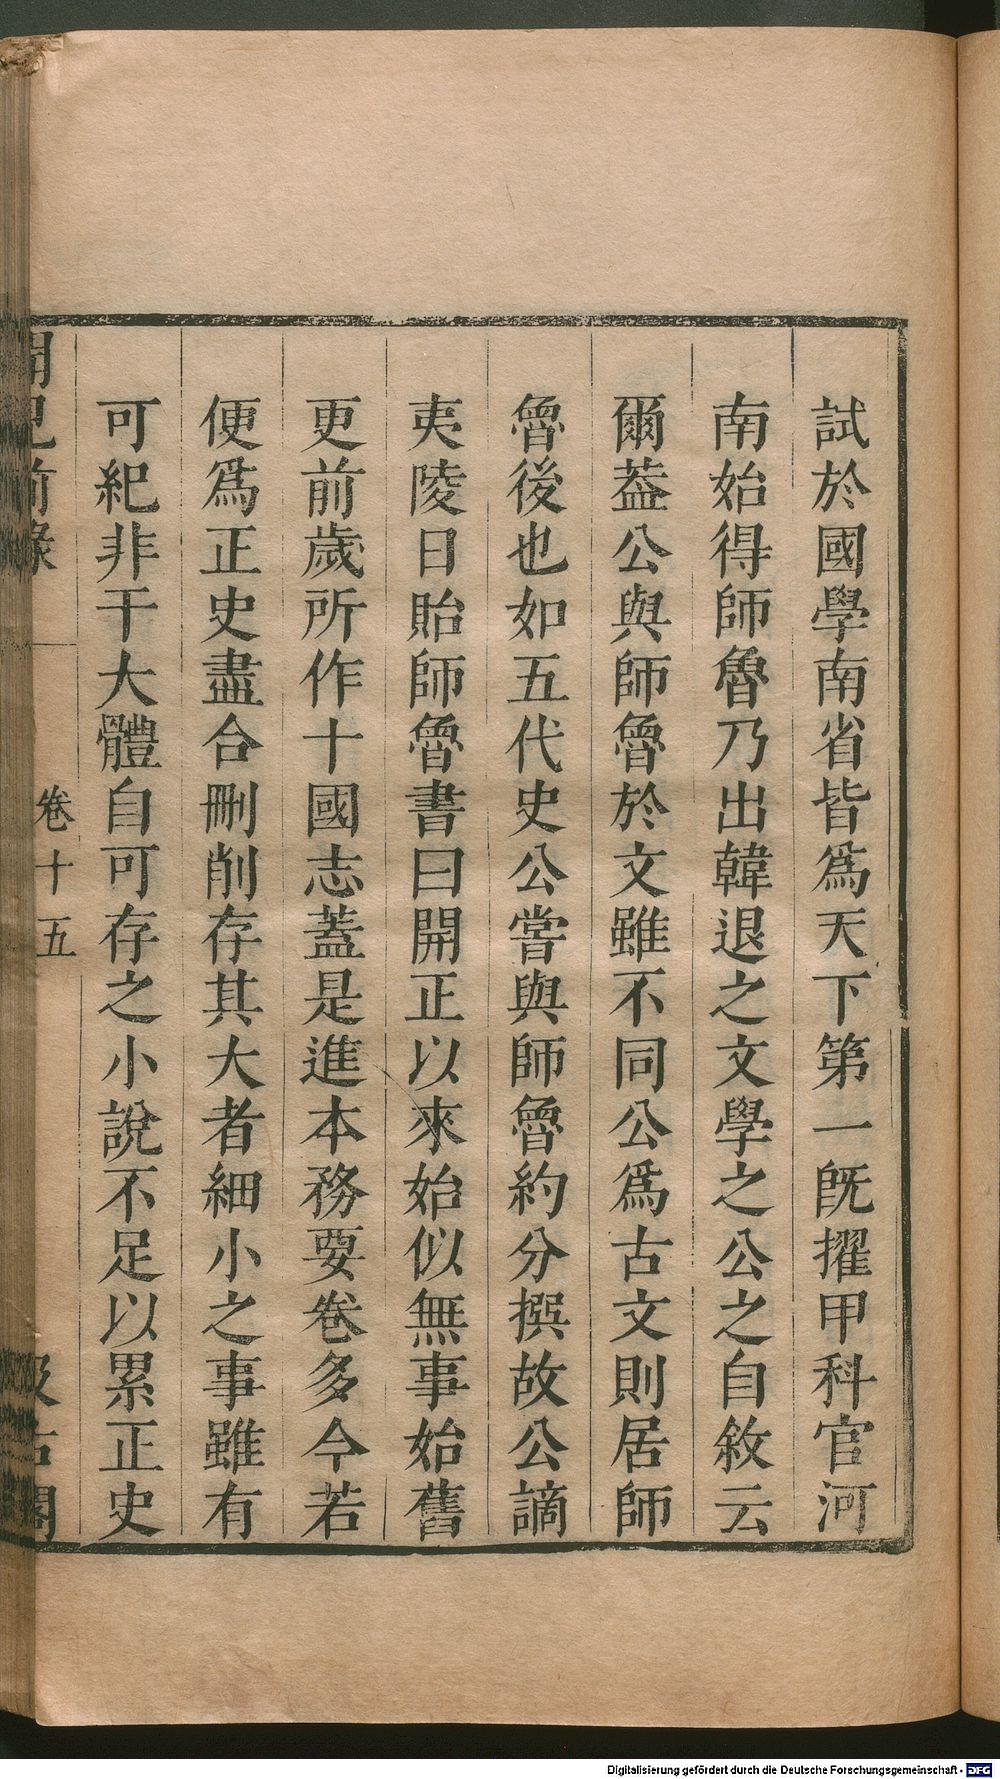 試於國學南省皆爲天下第一旣擢甲科官河
南始得師魯乃出韓退之文學之公之自敘云
爾葢公與師魯於文雖不同公爲古文則居師
魯後也如五代史公嘗與師魯約分撰故公謫
夷陵日貽師魯書曰開正以來始似無事始舊
更前歲所作十國志蓋是進本務要卷多今若
便爲正史盡合刪削存其大者細小之事雖有
可紀非干大體自可存之小說不足以累正史
聞見前錄
卷十五
汲古閣
Digitalisierung gefördert durch die Deutsche Forschungsgemeinschaft - DFG